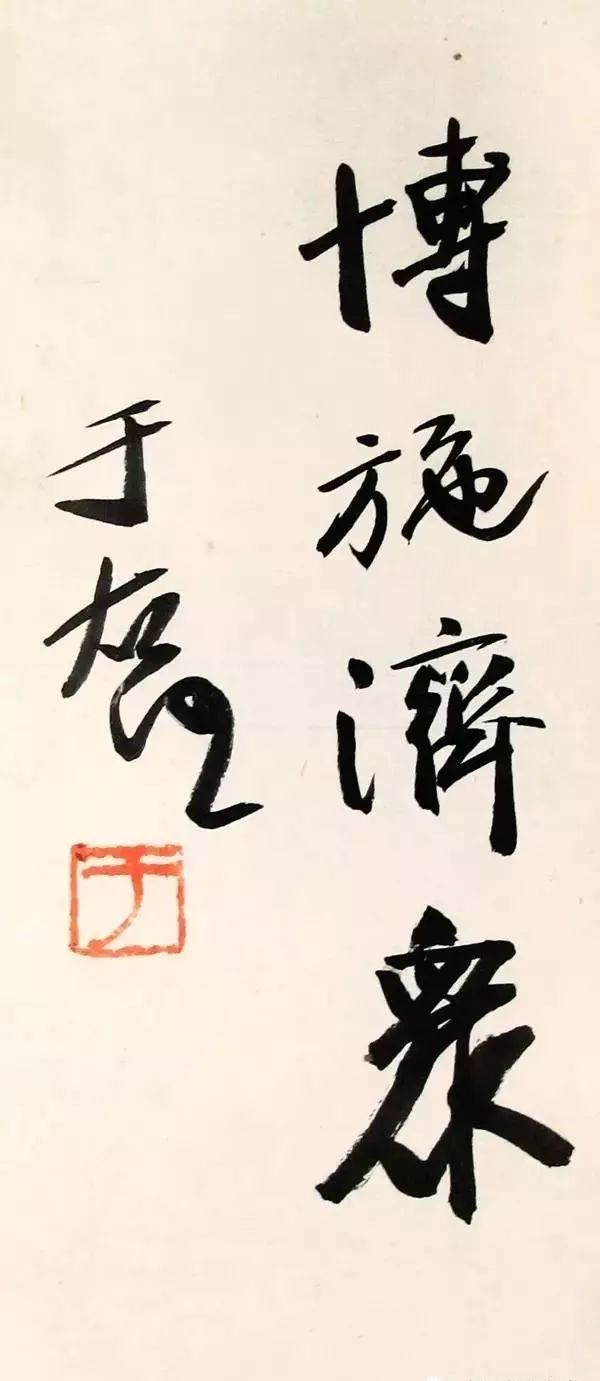 博施濟衆
于右任
于